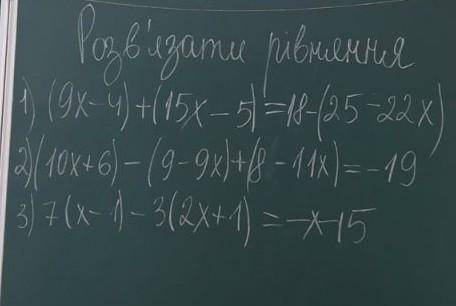 Розв'язати рівняння
1) (9x-4)+(15x-5)=18-(25-22x)
2) (10x+6)-(9-9x)+(8-11x)=-19
3) 7(x-1)-3(2x+1)=-x-15